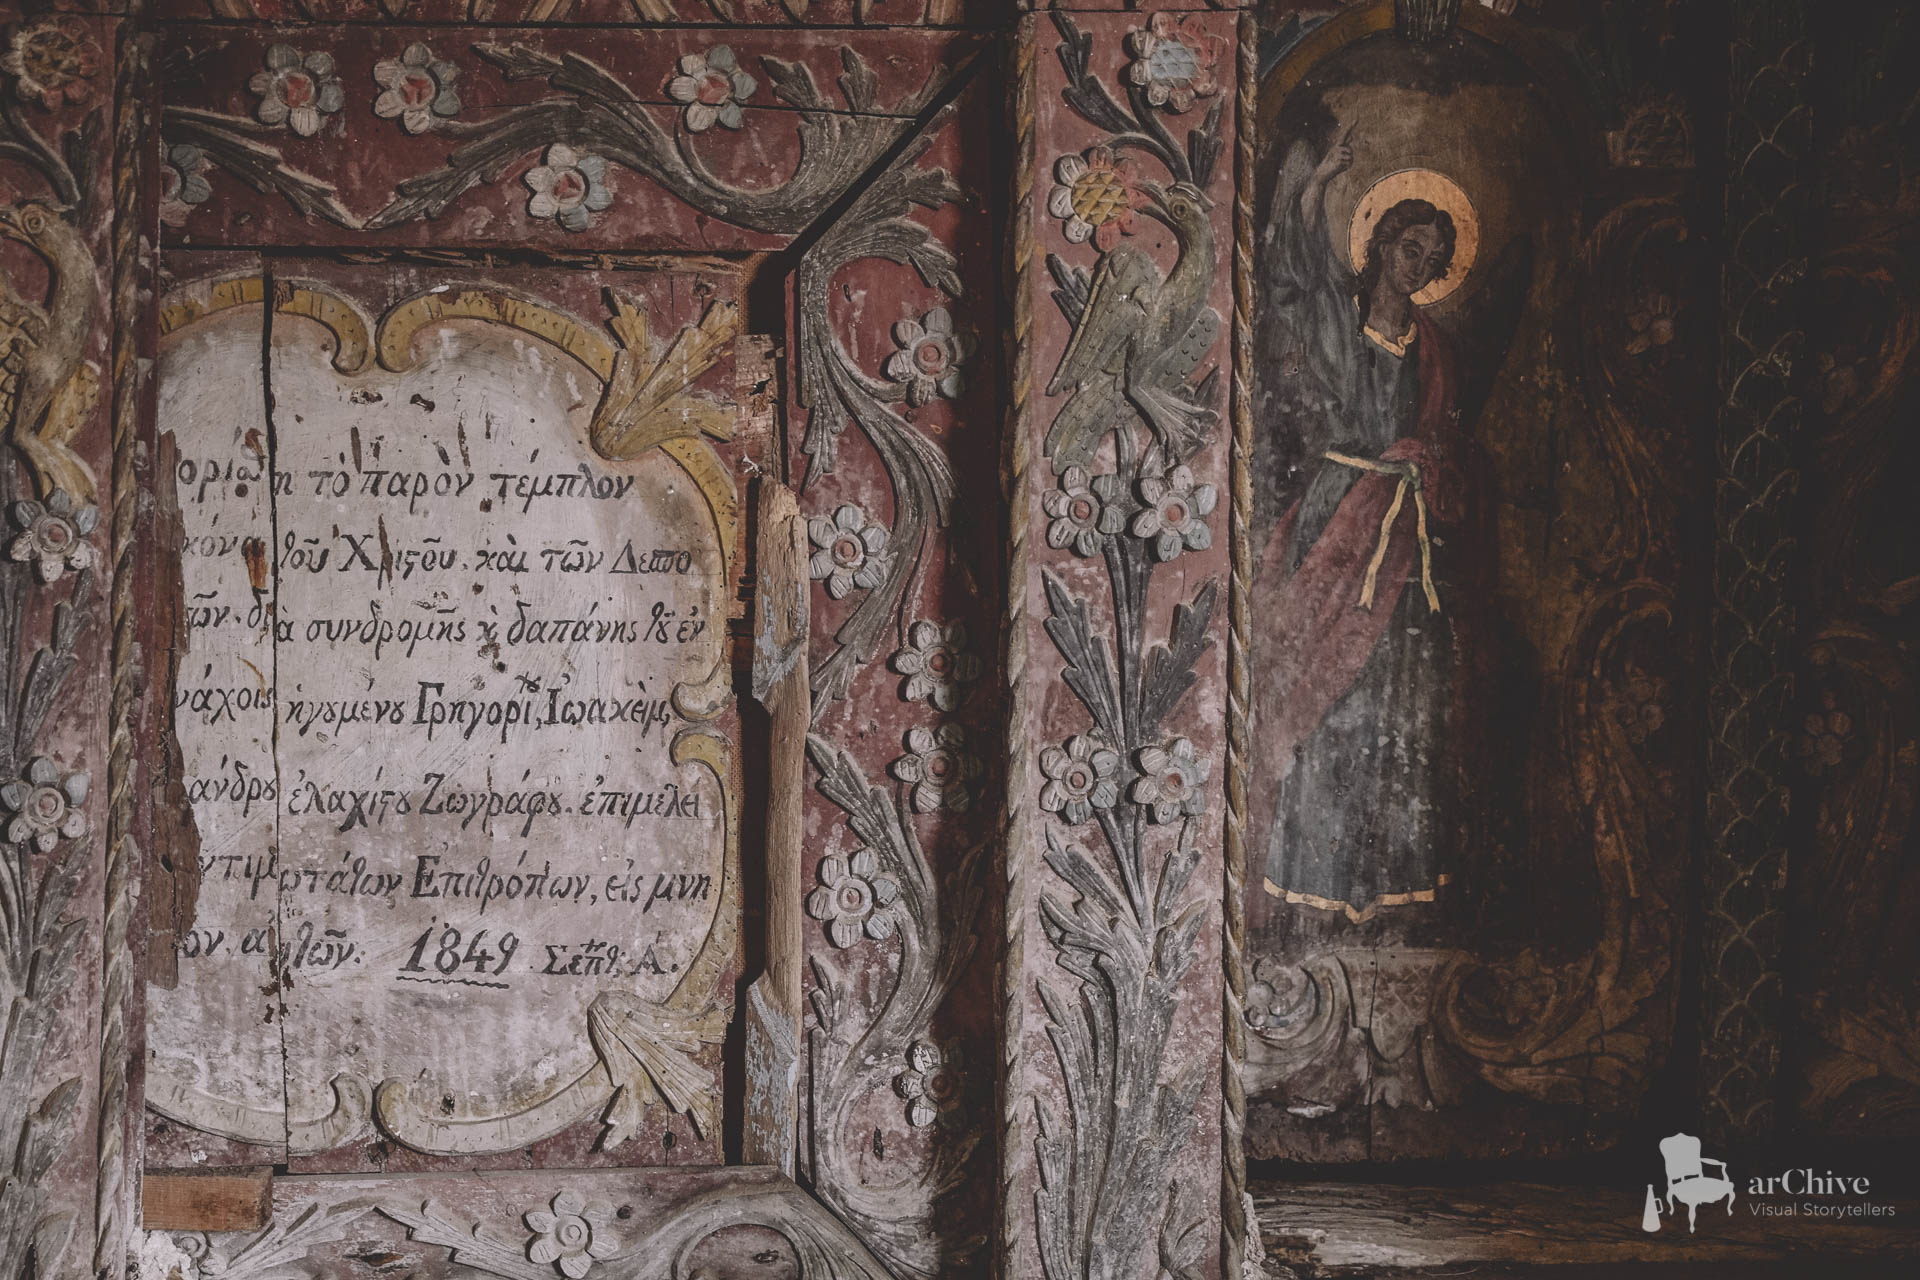 οριάσθη τὸ παρὸν τέμπλον
κόνα τοῦ Χριςοῦ. καὶ τῶν Δεσπο
τῶν. διὰ συνδρομῆς ϗ δαπάνης τȣ͂ ἐν
νάχοις ἡγȣμένȣ Γρηγορίȣ, Ἰωακεὶμ,
άνδρȣ ἐλαχίςȣ Ζωγράφȣ. ἐπιμελεί
ντιμωτάτων Ἐπιτρόπων, εἰς μνη
ον. αὐτῶν. 1849 Σεπτ; Α.
arChive
Visual Storytellers